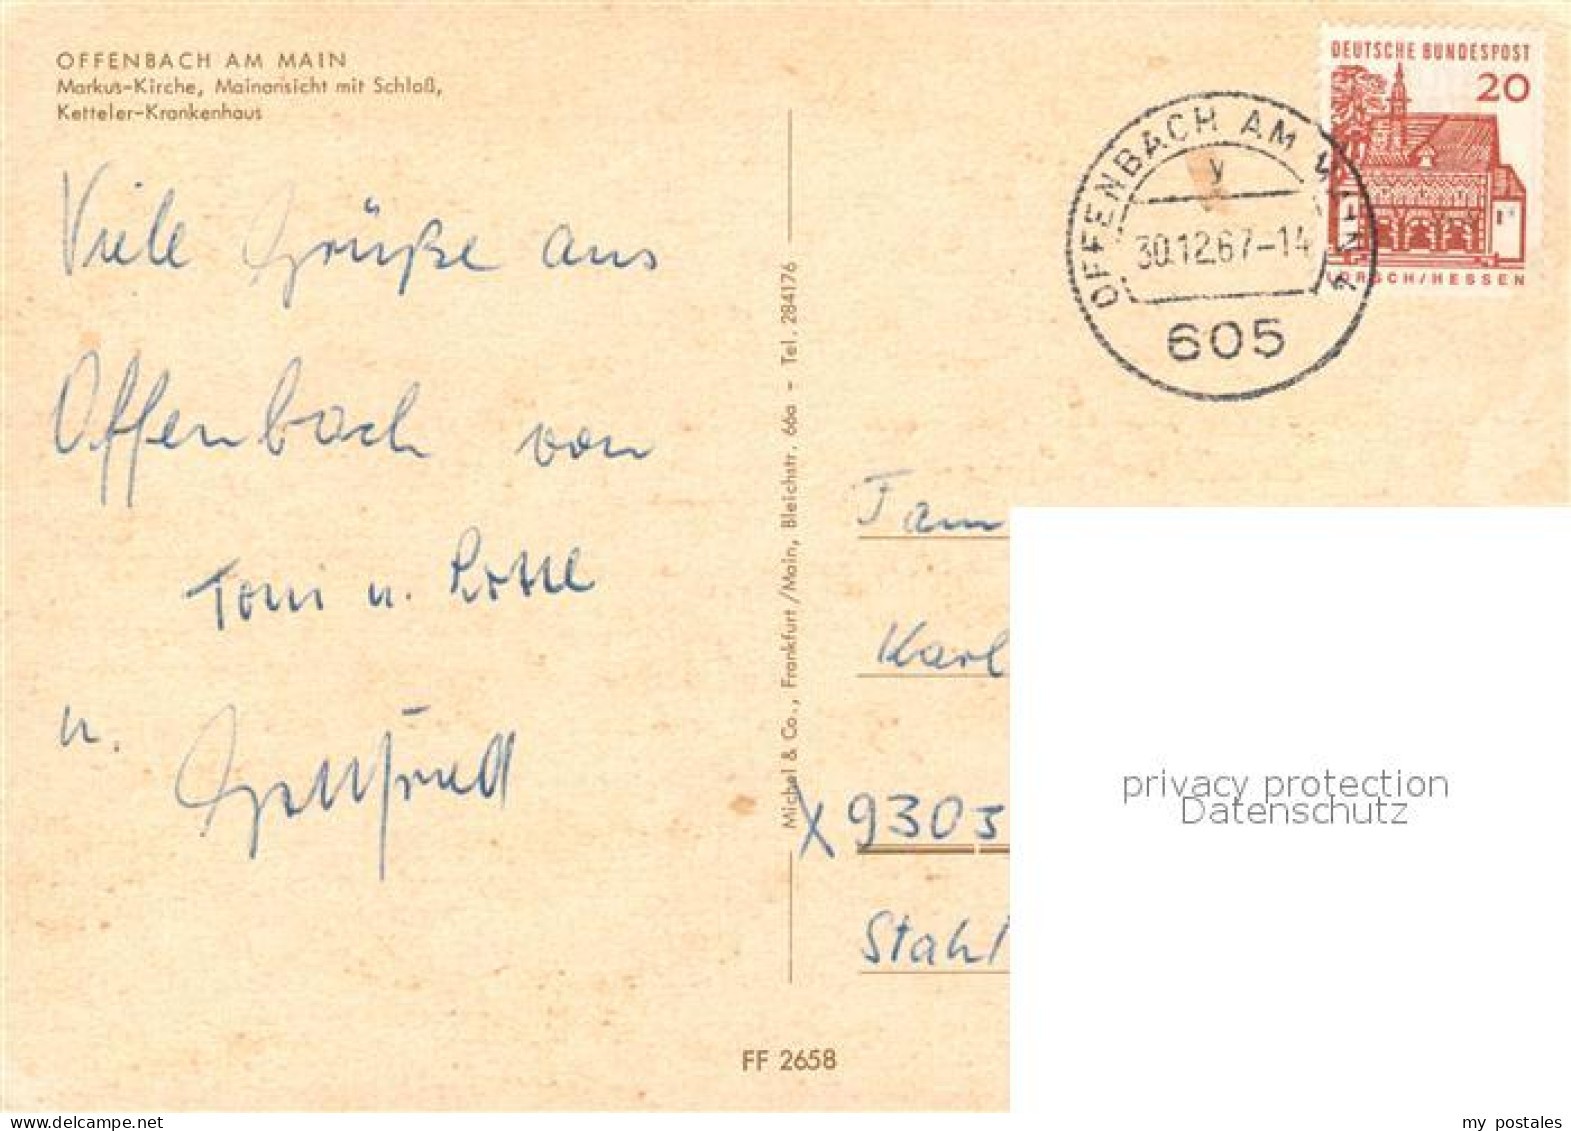 OFFENBACH AM MAIN
Markus-Kirche, Mainansicht mit Schloß,
Ketteler-Krankenhaus
DEUTSCHE BUNDESPOST
20
LORSCH/HESSEN
OFFENBACH AM MAIN 4
y
30.12.67-14
605
Viele Grüße aus
Offenbach von
Toni u. Lotte
u. Gottfried
Michel & Co., Frankfurt/Main, Bleichstr. 66a - Tel. 284176
Fam
Karl
X 9303
Stahl
privacy protection
Datenschutz
FF 2658
myspostales.com
my_postales